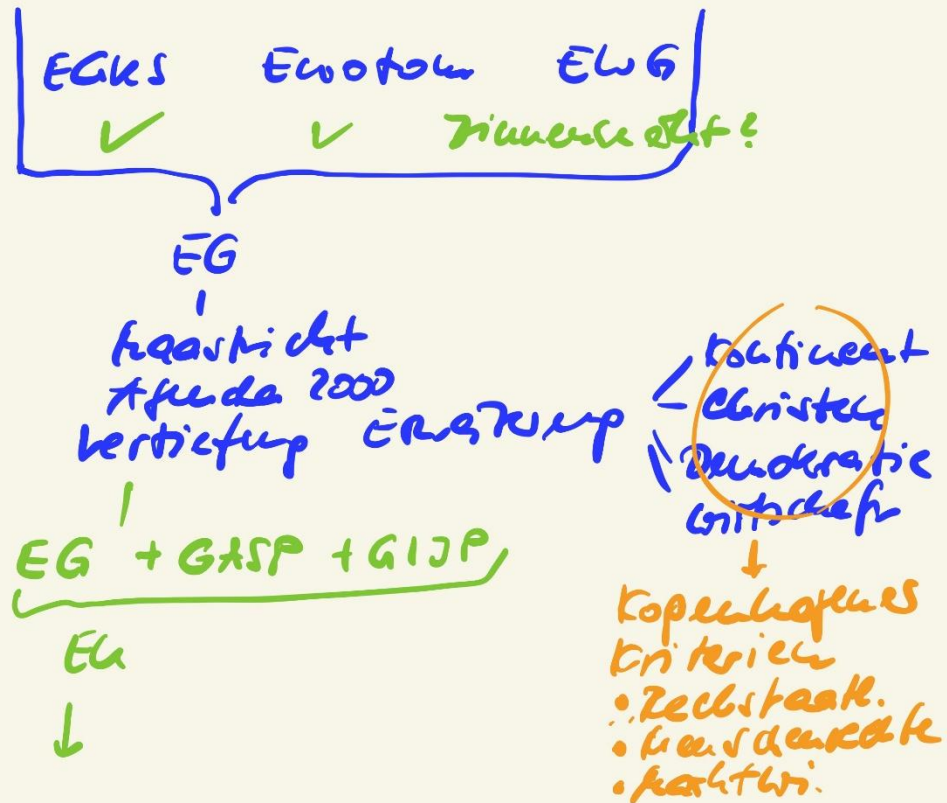 EGKS Euratom EWG
Binnenmarkt?
EG
Maastricht
Agenda 2000
Vertiefung Erweiterung
Kontinent
Christen
Demokratie
Wirtschaft
EG + GASP + GIJP
EU
Kopenhagener
Kriterien
• Rechtstaatl.
• Menschenrechte
• Marktwi.